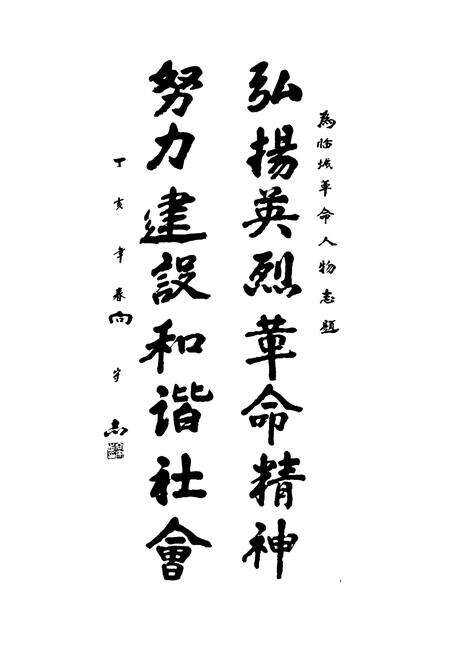 為临城革命人物志題
弘揚英烈革命精神
努力建設和谐社會
丁亥年春向守志